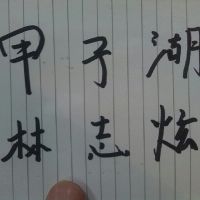 甲子湖
林志炫